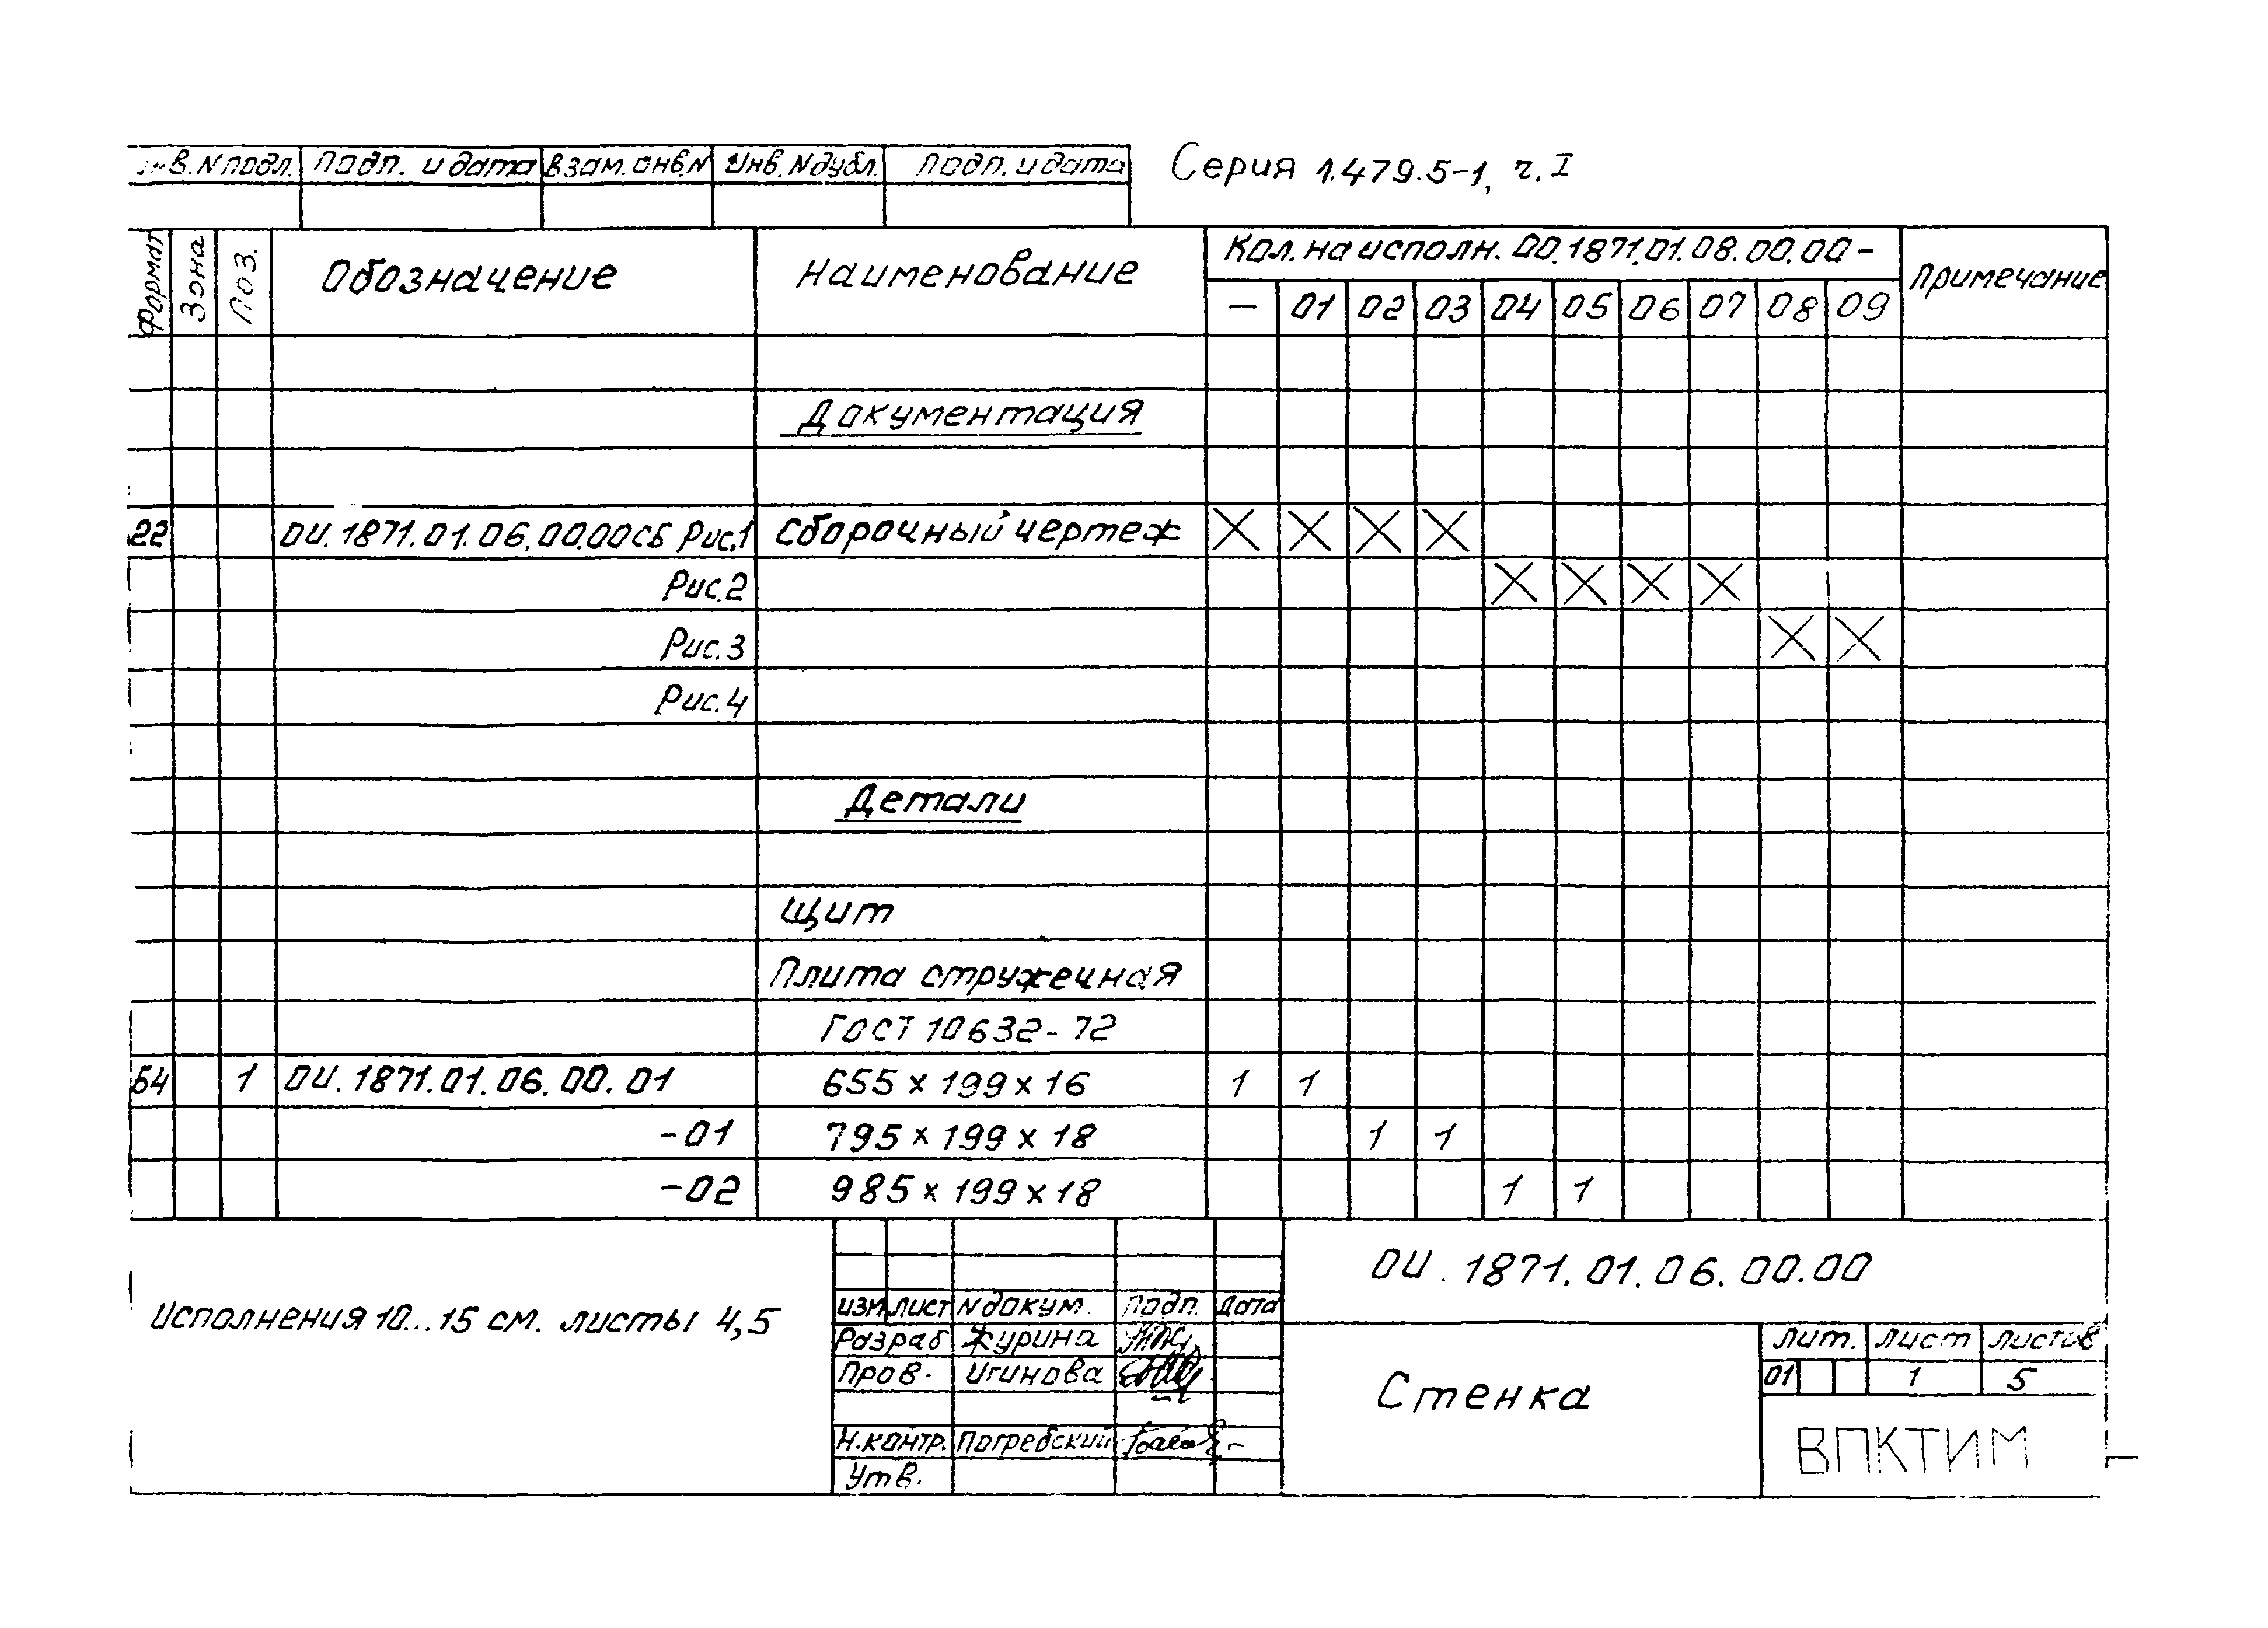 Инв.N подл. Подп. и дата Взам. инв.N Инв. N дубл. Подп. и дата Серия 1.479.5-1, ч. I
Формат Зона Поз. Обозначение Наименование Кол. на исполн. ОО.1871.01.08.00.00- Примечание
- 01 02 03 04 05 06 07 08 09
Документация
22 ОИ.1871.01.06.00.00СБ Рис.1 Сборочный чертеж X X X X
Рис.2 X X X X
Рис.3 X X
Рис.4
Детали
Щит
Плита стружечная
ГОСТ 10632-72
Б4 1 ОИ.1871.01.06.00.01 655 x 199 x 16 1 1
-01 795 x 199 x 18 1 1
-02 985 x 199 x 18 1 1
ОИ.1871.01.06.00.00
Исполнения 10...15 см. листы 4,5
Изм. лист N докум. Подп. Дата
Разраб Журина
Пров. Игинова
Стенка
Лит. Лист Листов
01 1 5
Н.контр. Погребский
Утв.
ВПКТИМ